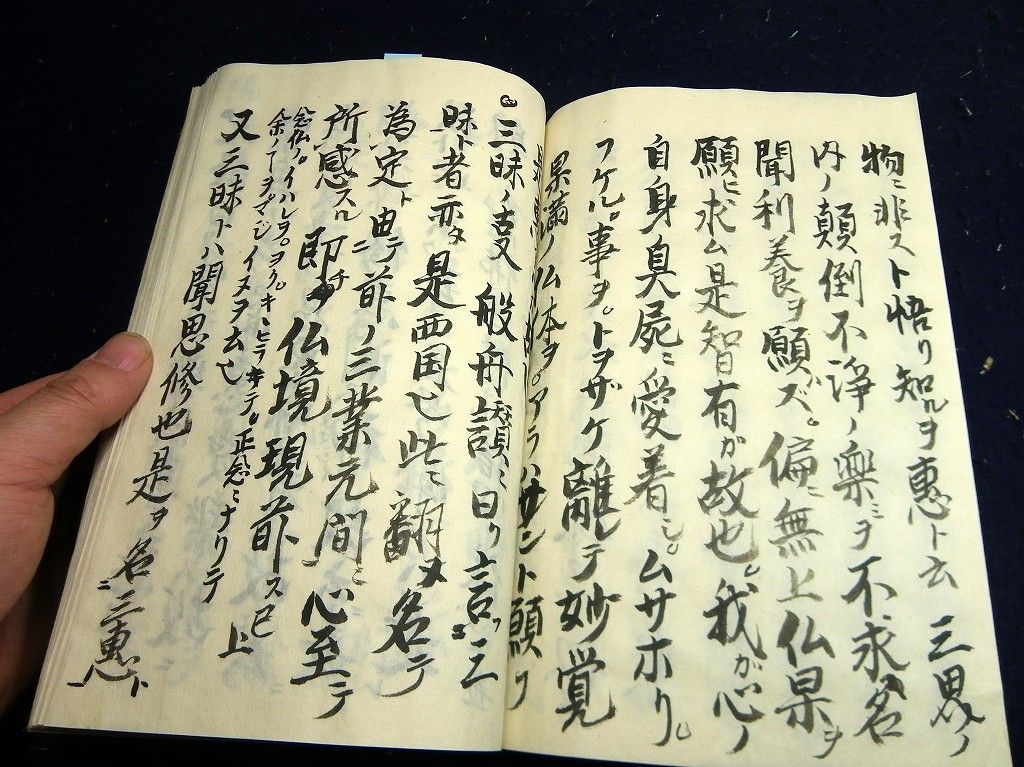 物ニ非スト悟り知ルヲ恵ト云 三界ノ
内ノ顛倒不浄ノ楽ミヲ不求名
聞利養ヲ願ハズ偏ニ無上仏果ヲ
願ヒ求ム是智有ガ故也我ガ心ノ
自身ノ臭屍ニ愛着シムサホリ
フケル事ヲトヲザケ離レテ妙覚
果満ノ仏本ヲアラハサント願フ
三昧ノ変 般舟讃ニ曰ク言フ三
昧ト者亦タ是西国ノ此ニ翻メ名テ
為定ト由テ前ノ三業无間ニ心至テ
所感スル即チ仏境現前ス已上
念仏ノイハレヲヨクキヒラキテ正念ニナリテ
余ノヲマジイヌヲ云也
又三昧トハ聞思修也是ヲ名ニ三恵ト